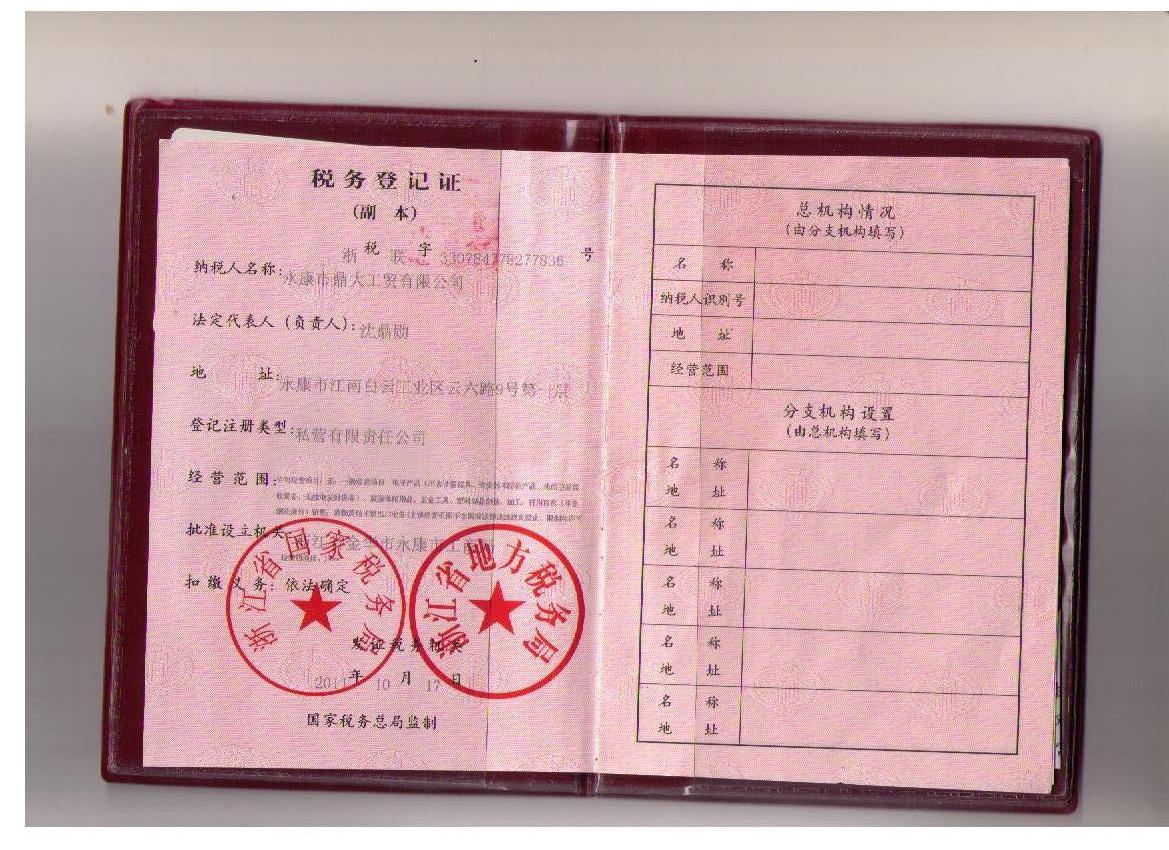 税务登记证
(副 本)
浙 税 联 字 330784778277836 号
纳税人名称:永康市鼎大工贸有限公司
法定代表人(负责人):沈鼎勋
地 址:永康市江南白云工业区云六路9号第一层
登记注册类型:私营有限责任公司
经营范围:
批准设立机关 浙江省金华市永康市工商局
扣缴义务:依法确定
浙江省国家税务局
浙江省地方税务局
发证税务机关
2011年 10 月 17 日
国家税务总局监制
总机构情况
(由分支机构填写)
名 称
纳税人识别号
地 址
经营范围
分支机构设置
(由总机构填写)
名 称
地 址
名 称
地 址
名 称
地 址
名 称
地 址
名 称
地 址